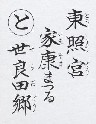 東照宮
家康まつる
と 世良田郷